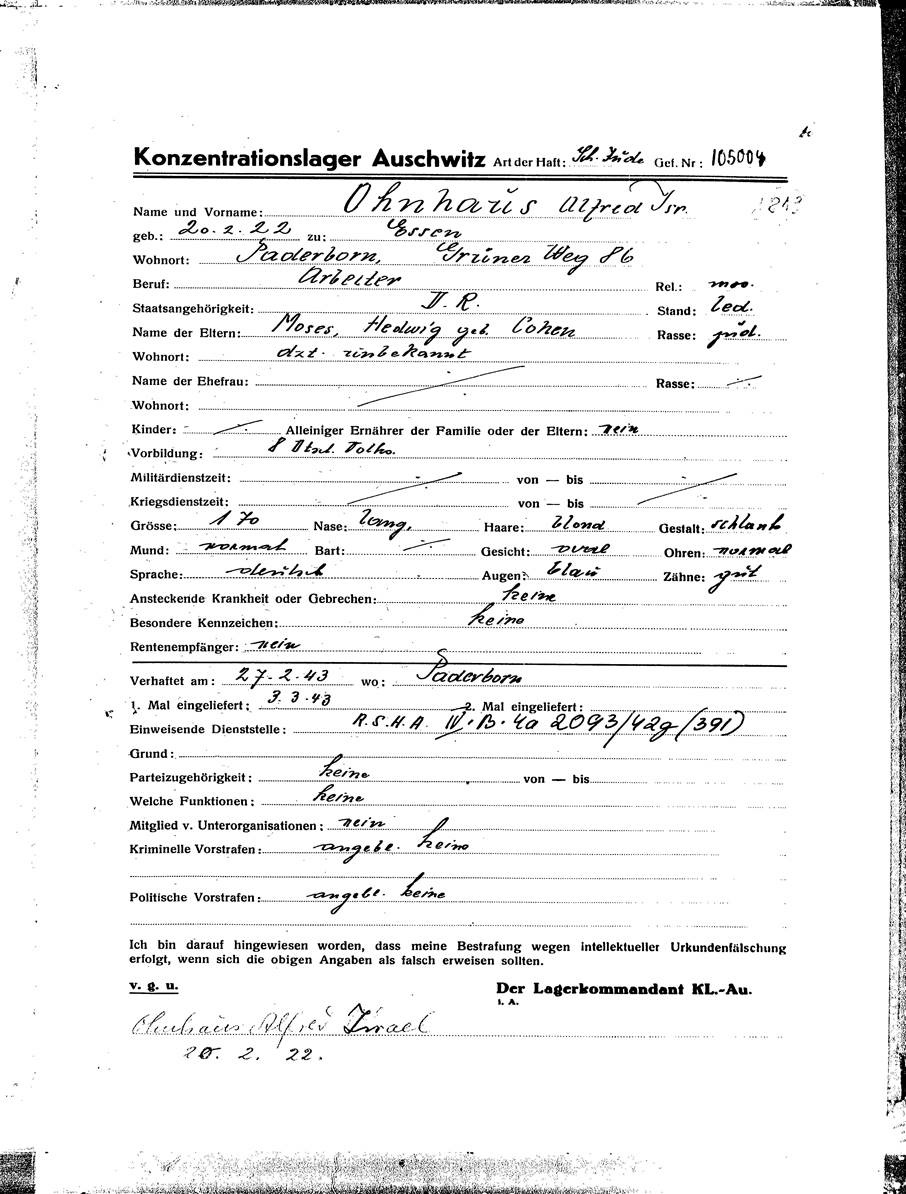 Konzentrationslager Auschwitz Art der Haft: Sch. Jude Gef. Nr: 105004
Name und Vorname: Ohnhaus Alfred Isr.
geb.: 20. 2. 22 zu: Essen
Wohnort: Paderborn, Grüner Weg 86
Beruf: Arbeiter Rel.: mos.
Staatsangehörigkeit: D. R. Stand: led.
Name der Eltern: Moses, Hedwig geb. Cohen Rasse: jüd.
Wohnort: dzt. unbekannt
Name der Ehefrau: Rasse:
Wohnort:
Kinder: Alleiniger Ernährer der Familie oder der Eltern: nein
Vorbildung: 8 Volks.
Militärdienstzeit: von — bis
Kriegsdienstzeit: von — bis
Grösse: 170 Nase: lang, Haare: blond Gestalt: schlank
Mund: normal Bart: Gesicht: oval Ohren: normal
Sprache: deutsch Augen: blau Zähne: gut
Ansteckende Krankheit oder Gebrechen: keine
Besondere Kennzeichen: keine
Rentenempfänger: nein
Verhaftet am: 27. 2. 43 wo: Paderborn
1. Mal eingeliefert: 3. 3. 43 2. Mal eingeliefert:
Einweisende Dienststelle: R.S.H.A. IV. B. 4a 2093/42g (391)
Grund:
Parteizugehörigkeit: keine von — bis
Welche Funktionen: keine
Mitglied v. Unterorganisationen: nein
Kriminelle Vorstrafen: angebl. keine
Politische Vorstrafen: angebl. keine
Ich bin darauf hingewiesen worden, dass meine Bestrafung wegen intellektueller Urkundenfälschung
erfolgt, wenn sich die obigen Angaben als falsch erweisen sollten.
v. g. u. Der Lagerkommandant KL.-Au.
i. A.
Ohnhaus Alfred Israel
20. 2. 22.